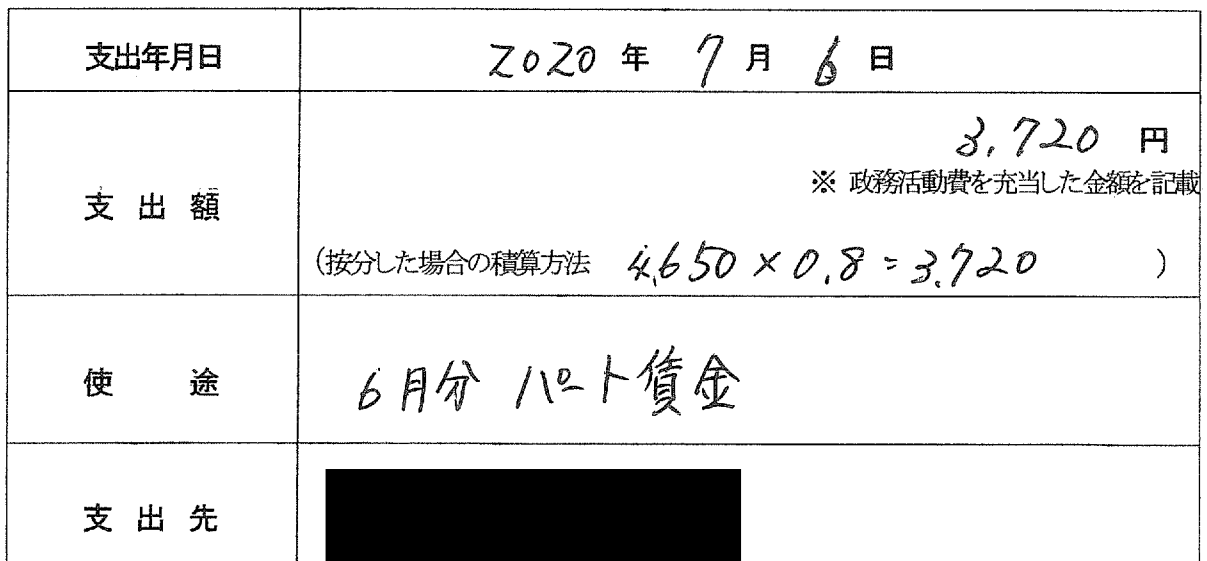 支出年月日 2020 年 7 月 6 日
3,720 円
※ 政務活動費を充当した金額を記載
支 出 額
(按分した場合の積算方法 4,650 × 0.8 = 3,720 )
使 途 6月分 パート賃金
支 出 先